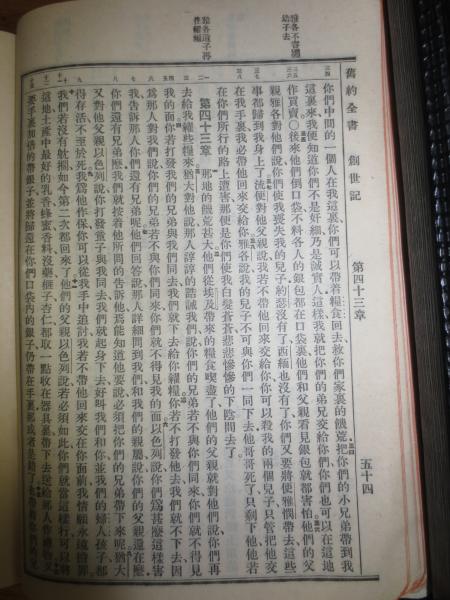 雅各不容遣
幼子去
雅各遣子再
往糴糧
舊約全書 創世記 第四十三章 五十四
你們中間的一個人在我這裏你們可以帶着糧食回去救你們家裏的饑荒把你們的小兄弟帶到我
這裏來我便知道你們不是奸細乃是誠實人這樣我就把你們的弟兄交給你們你們也可以在這地
作買賣○後來他們倒口袋不料各人的銀包都在口袋裏他們和父親看見銀包就都害怕他們的父
親雅各對他們說你們使我喪失我的兒子約瑟沒有了西緬也沒有了你們又要將便雅憫帶去這些
事都歸到我身上了流便對他父親說我若不帶他回來交給你你可以殺我的兩個兒子只管把他交
在我手裏我必帶他回來交給你雅各說我的兒子不可與你們一同下去他哥哥死了只剩下他他若
在你們所行的路上遭害那便是你們使我白髮蒼蒼悲悲慘慘的下陰間去了
第四十三章 那地的饑荒甚大他們從埃及帶來的糧食喫盡了他們的父親就對他們說你們再
去給我糴些糧來猶大對他說那人諄諄的誥誡我們說你們的兄弟若不與你們同來你們就不得見
我的面你若打發我們的兄弟與我們同去我們就下去給你糴糧你若不打發他去我們就不下去因
爲那人對我們說你們的兄弟若不與你們同來你們就不得見我的面以色列說你們爲甚麼這樣害
我告訴那人你們還有兄弟呢他們回答說那人詳細問到我們和我們的親屬說你們的父親還在麼
你們還有兄弟麼我們就按着他所問的告訴他焉能知道他要說必須把你們的兄弟帶下來呢猶大
又對他父親以色列說你打發童子與我同去我們就起身下去好叫我們和你並我們的婦人孩子都
得存活不至於死我爲他作保你可以從我手中追討我若不帶他回來交在你面前我情願永遠擔罪
我們若沒有躭擱如今第二次都回來了他們的父親以色列說若必須如此你們就當這樣行可以將
這地土產中最好的乳香蜂蜜香料沒藥榧子杏仁都取一點收在器具裏帶下去送給那人作禮物又
要手裏加倍的帶銀子並將歸還在你們口袋內的銀子仍帶在手裏那或者是錯了